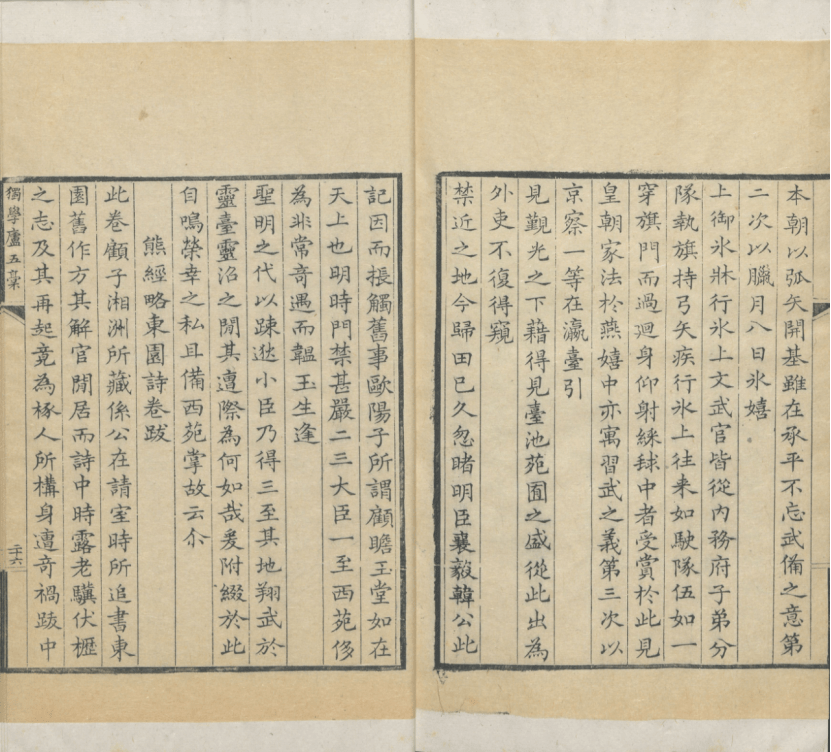 本朝以弧矢開基雖在承平不忘武備之意第
二次以臘月八日氷嬉
上御氷牀行氷上文武官皆從內務府子弟分
隊執旗持弓矢疾行氷上往来如駛隊伍如一
穿旗門而過迴身仰射綵毬中者受賞於此見
皇朝家法於燕嬉中亦寓習武之義第三次以
京察一等在瀛臺引
見觀光之下藉得見臺池苑囿之盛從此出為
外吏不復得窺
禁近之地今歸田已久忽睹明臣襄毅韓公此
記因而棖觸舊事歐陽子所謂顧瞻玉堂如在
天上也明時門禁甚嚴二三大臣一至西苑侈
為非常奇遇而韞玉生逢
聖明之代以踈逖小臣乃得三至其地翔武於
靈臺靈沼之閒其遭際為何如哉爰附綴於此
自鳴榮幸之私且備西苑掌故云尒
熊經略東園詩卷跋
此卷顧子湘洲所藏係公在請室時所追書東
園舊作方其解官閒居而詩中時露老驥伏櫪
之志及其再起竟為椓人所構身遭奇禍跋中
獨學廬五稾
二十六